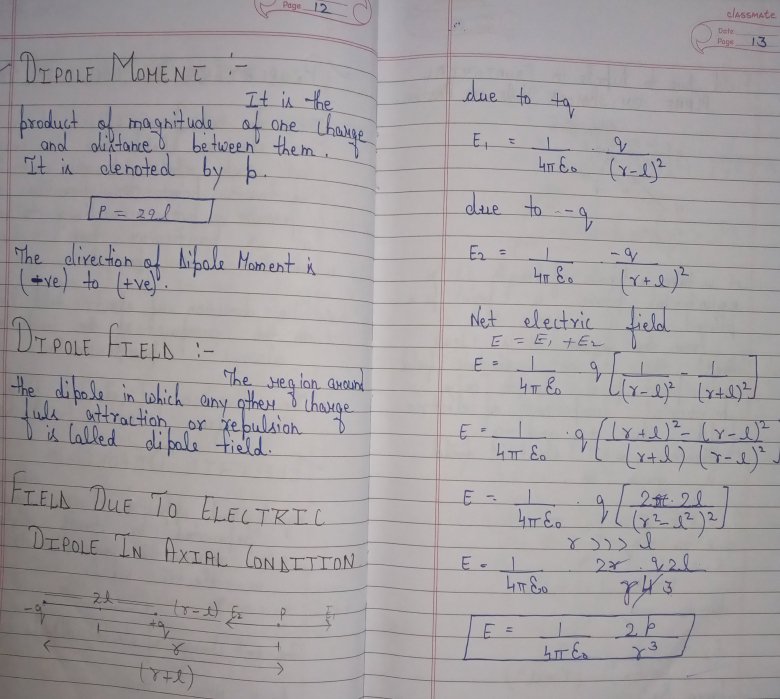 Page 12
DIPOLE MOMENT :-
It is the
product of magnitude of one charge
and distance between them.
It is denoted by p.
P = 2ql
The direction of Dipole Moment is
(-ve) to (+ve).
DIPOLE FIELD :-
The region around
the dipole in which any other charge
fuls attraction or repulsion
is called dipole field.
FIELD DUE TO ELECTRIC
DIPOLE IN AXIAL CONDITION
-q 2l +q (r-l) E2 P E1
r
(r+l)
classmate
Date
Page 13
due to +q
E1 = 1/4πε0 q/(r-l)²
due to -q
E2 = 1/4πε0 -q/(r+l)²
Net electric field
E = E1 + E2
E = 1/4πε0 q[1/(r-l)² - 1/(r+l)²]
E = 1/4πε0 · q[(r+l)² - (r-l)²/(r+l) (r-l)²]
E = 1/4πε0 · q[2r · 2l/(r²-l²)²]
r >>> l
E = 1/4πε0 2r · q2l/r4 3
E = 1/4πε0 2p/r³